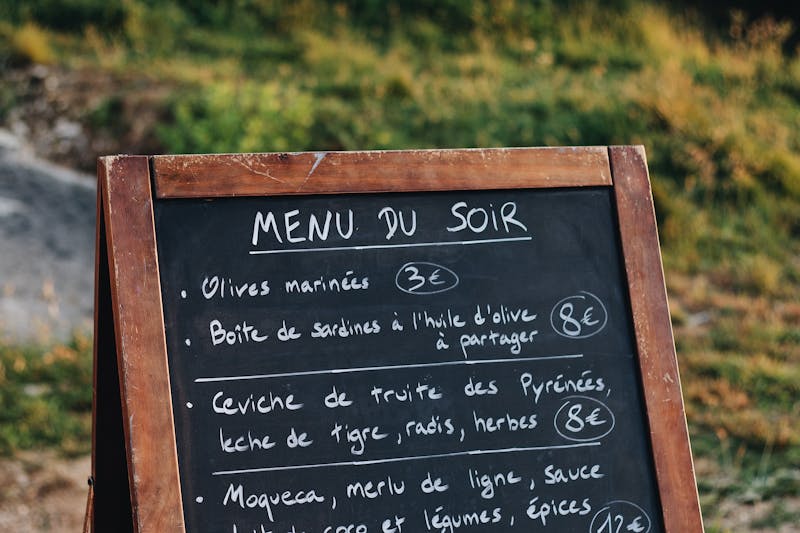 MENU DU SOIR
• Olives marinées 3€
• Boîte de sardines à l'huile d'olive 8€
à partager
• Ceviche de truite des Pyrénées,
leche de tigre, radis, herbes 8€
• Moqueca, merlu de ligne, sauce
lait de coco et légumes, épices 12€